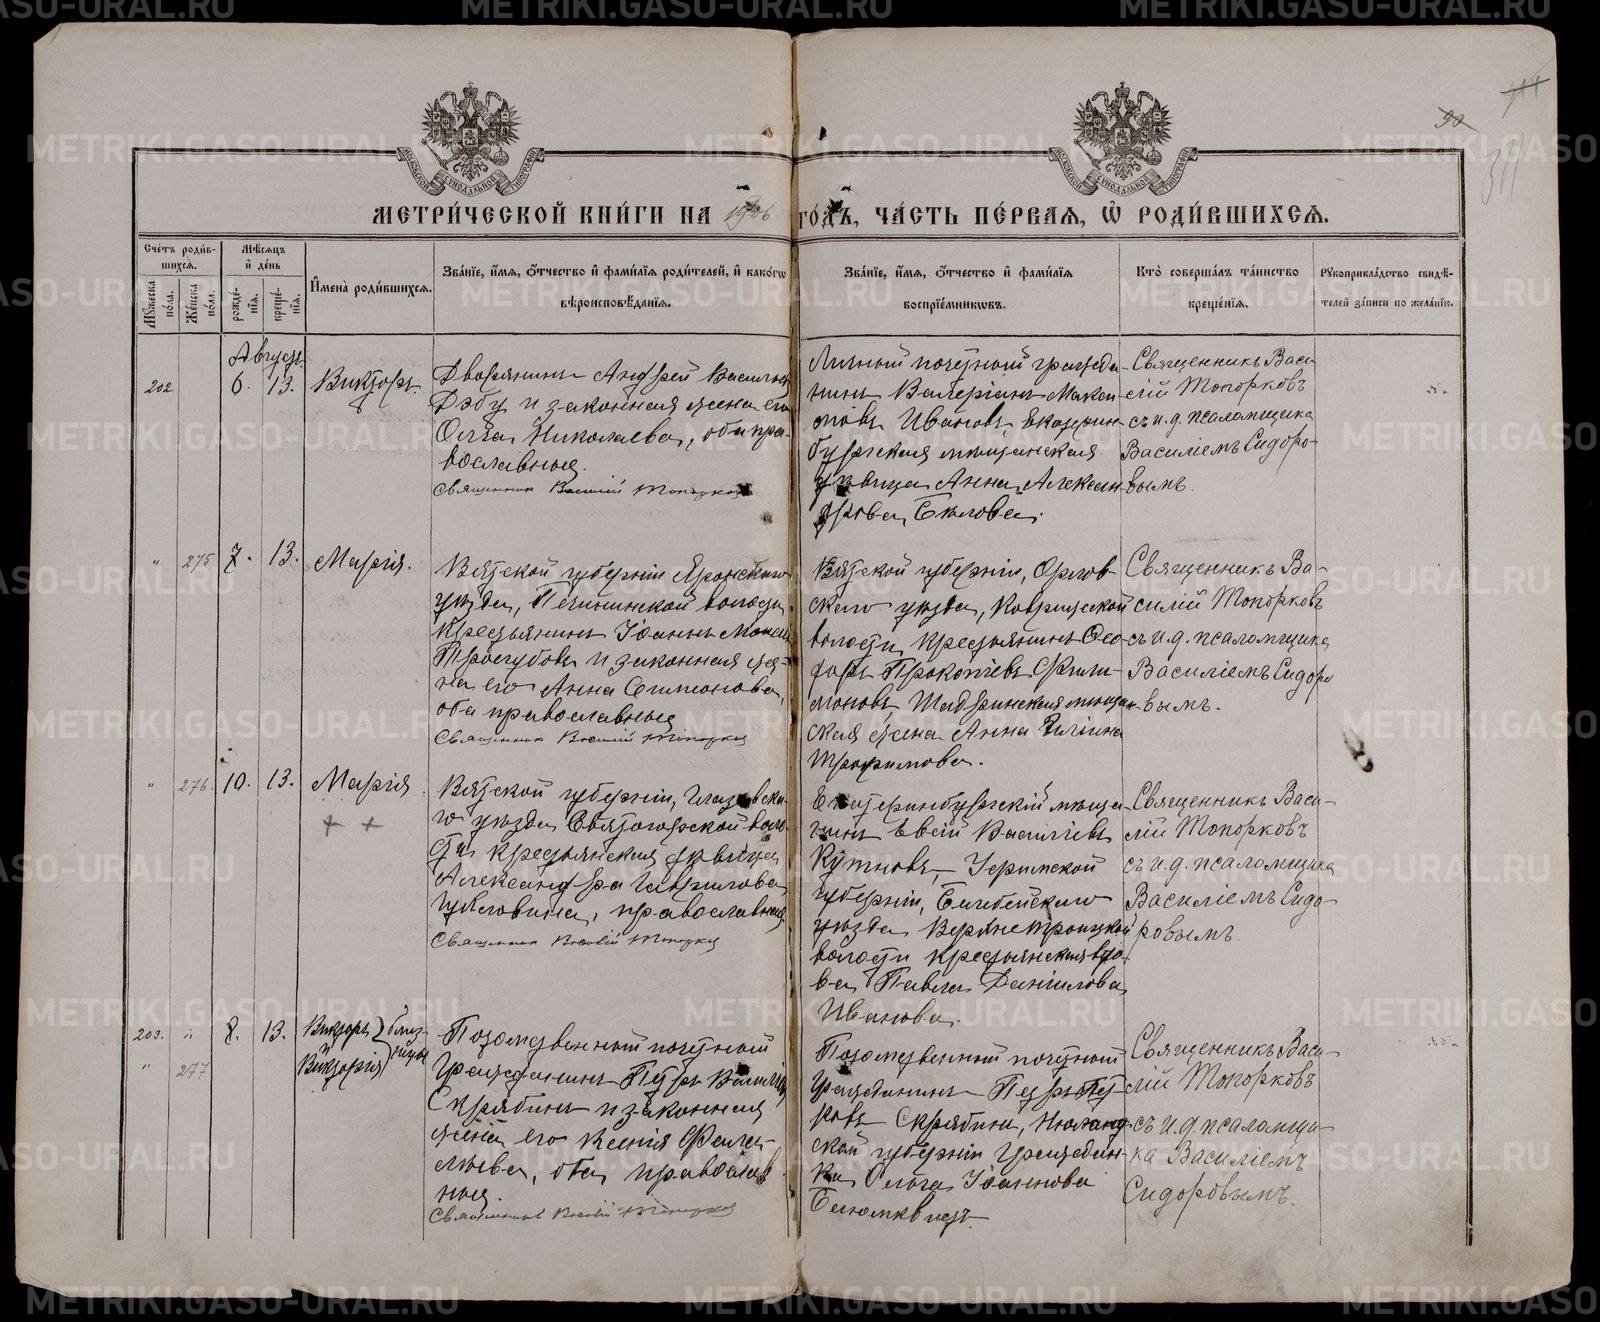 МЕТРИЧЕСКОЙ КНИГИ НА 1906 ГОДЪ, ЧАСТЬ ПЕРВАЯ, Ѿ РОДИВШИХСЯ.
Счетъ родившихся.
Мужеска пола.
Женска пола.
Мѣсяцъ и день
рожденія.
крещенія.
Имена родившихся.
Званіе, имя, отчество и фамилія родителей, и какогѡ
вѣроисповѣданія.
Званіе, имя, отчество и фамилія
воспріемниковъ.
Кто совершалъ таинство
крещенія.
Рукоприкладство свидѣ-
телей записи по желанію.
202
Августъ
6. 13.
Викторъ.
Дворянинъ Андрей Василье
Дэбу и законная жена его
Ольга Николаева, оба пра-
вославные.
Священник Василій Топорков
Личный почетный гражда-
нинъ Валеріанъ Макси
мовъ Ивановъ, Екатерин
бургская мѣщанская
дѣвица Анна Алексан
дрова Бѣлова.
Священникъ Васи
лій Топорковъ
съ и.д. псаломщика
Василіемъ Сидоро-
вымъ.
" 275 7. 13. Марія.
Вятской губерніи Яранскаго
уѣзда, волости
крестьянинъ Іоаннъ
и законная же-
на его Анна Симеонова,
оба православные
Священник Василій Топорков
Вятской губерніи, Орлов-
скаго уѣзда,
волости крестьянинъ Ѳео-
доръ Прокопіевъ Фили-
моновъ, Шадринская мѣщан-
ская жена Анна
Трофимова.
Священникъ Ва-
силій Топорковъ
съ и.д. псаломщика
Василіемъ Сидоро
вымъ.
" 276. 10. 13. Марія
+ +
Вятской губерніи, Глазовска-
го уѣзда Святогорской воло
сти крестьянская дѣвица
Александра Гаврилова
православная
Священник Василій Топорков
Екатеринбургскій мѣща-
нинъ Евсій Василіевъ
Кутновъ, Уфимской
губерніи, Белебейскаго
уѣзда Верхнетроицкой
волости крестьянская вдо-
ва Павла Даниилова
Иванова.
Священникъ Васи-
лій Топорковъ
съ и.д. псаломщика
Василіемъ Сидо-
ровымъ.
203. " 8. 13. Викторъ
" 277 и Викторія близнецы
Потомственный почетный
гражданинъ Петръ Василіевъ
Скрябинъ и законная
жена его Ксенія
оба православ
ные.
Священник Василій Топорков
Потомственный почетный
гражданинъ Петръ Пет-
ровъ Скрябинъ, Нюланд-
ской губерніи гражданка
Ольга Іоаннова
Священникъ Васи-
лій Топорковъ
съ и.д. псаломщи-
ка Василіемъ
Сидоровымъ.
90
311
METRIKI.GASO-URAL.RU